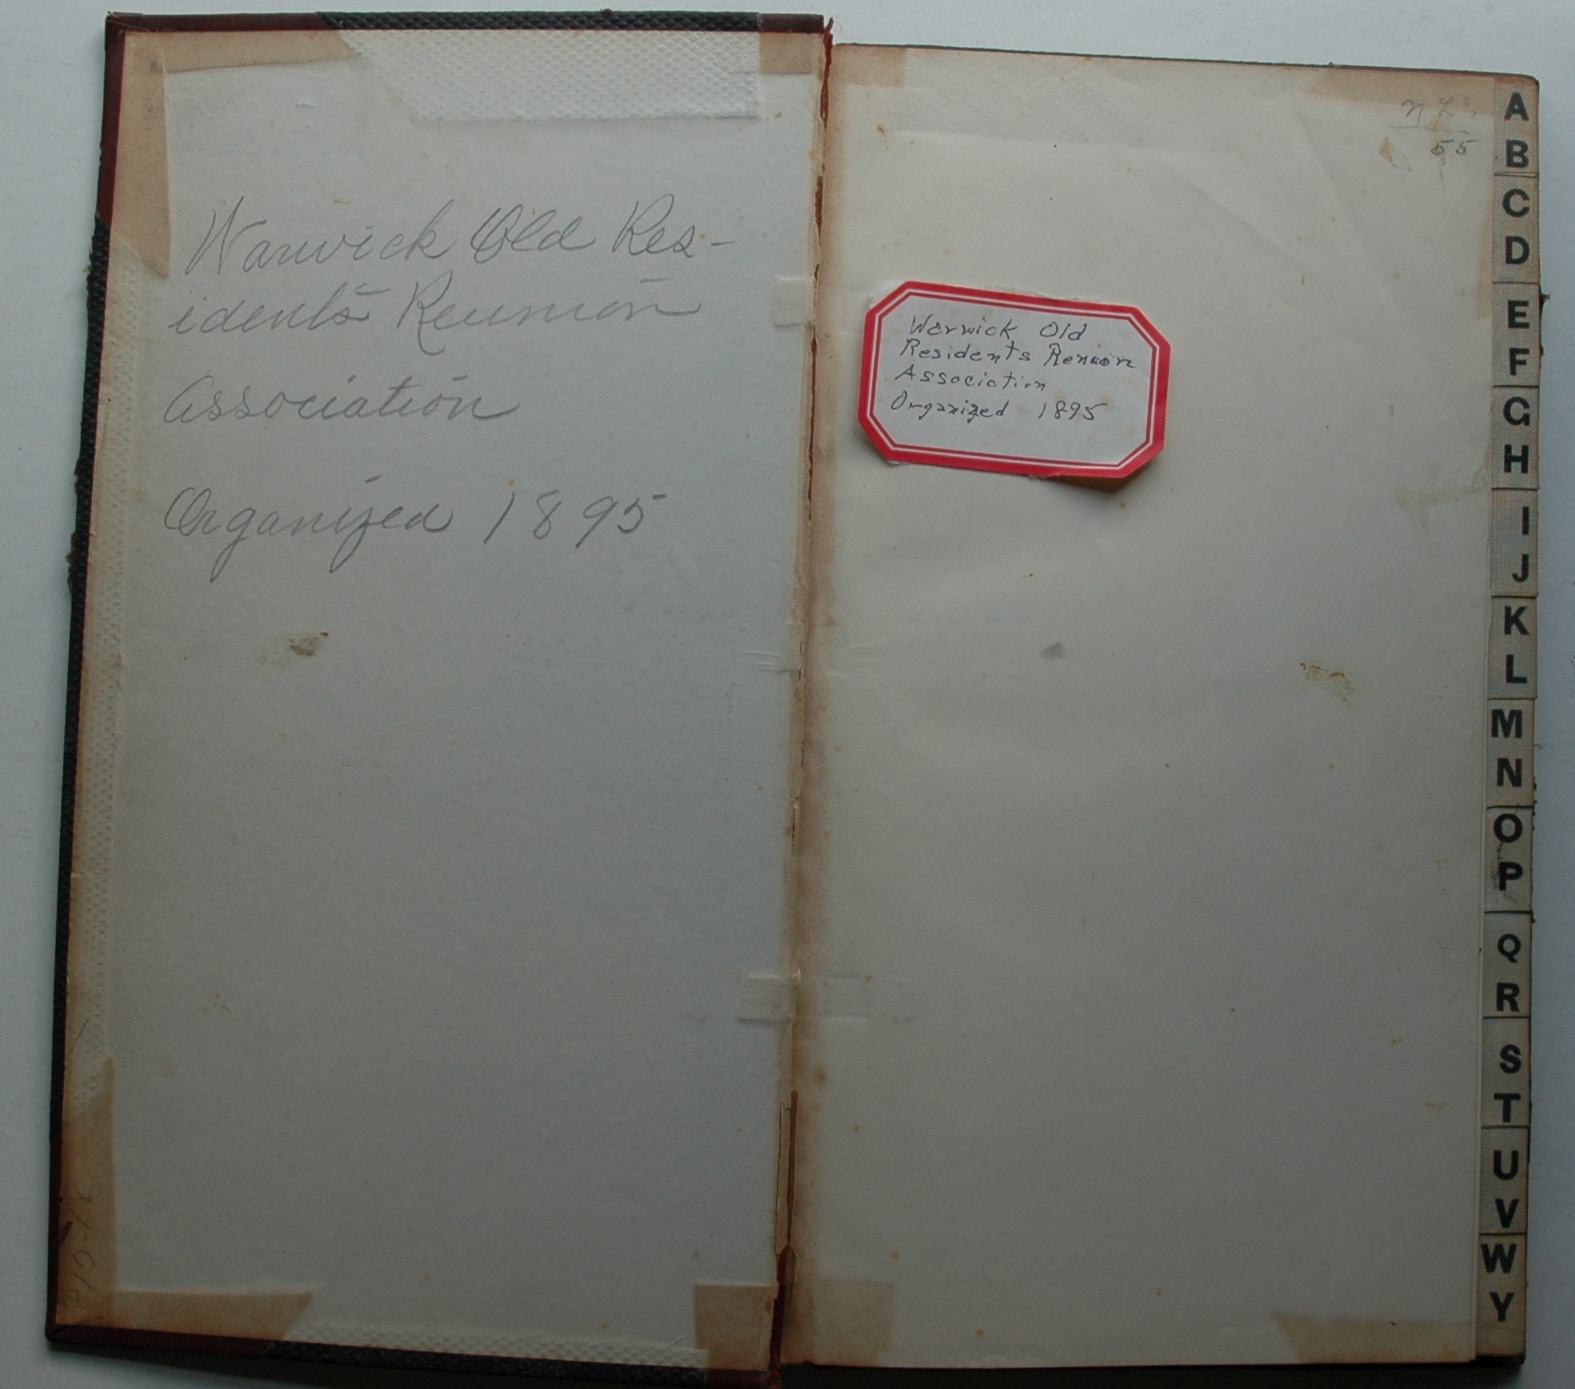 Warwick Old Res-
idents Reunion
Association
Organized 1895
55
Warwick Old
Residents Renuion
Association
Organized 1895
A
B
C
D
E
F
G
H
I
J
K
L
M
N
O
P
Q
R
S
T
U
V
W
Y